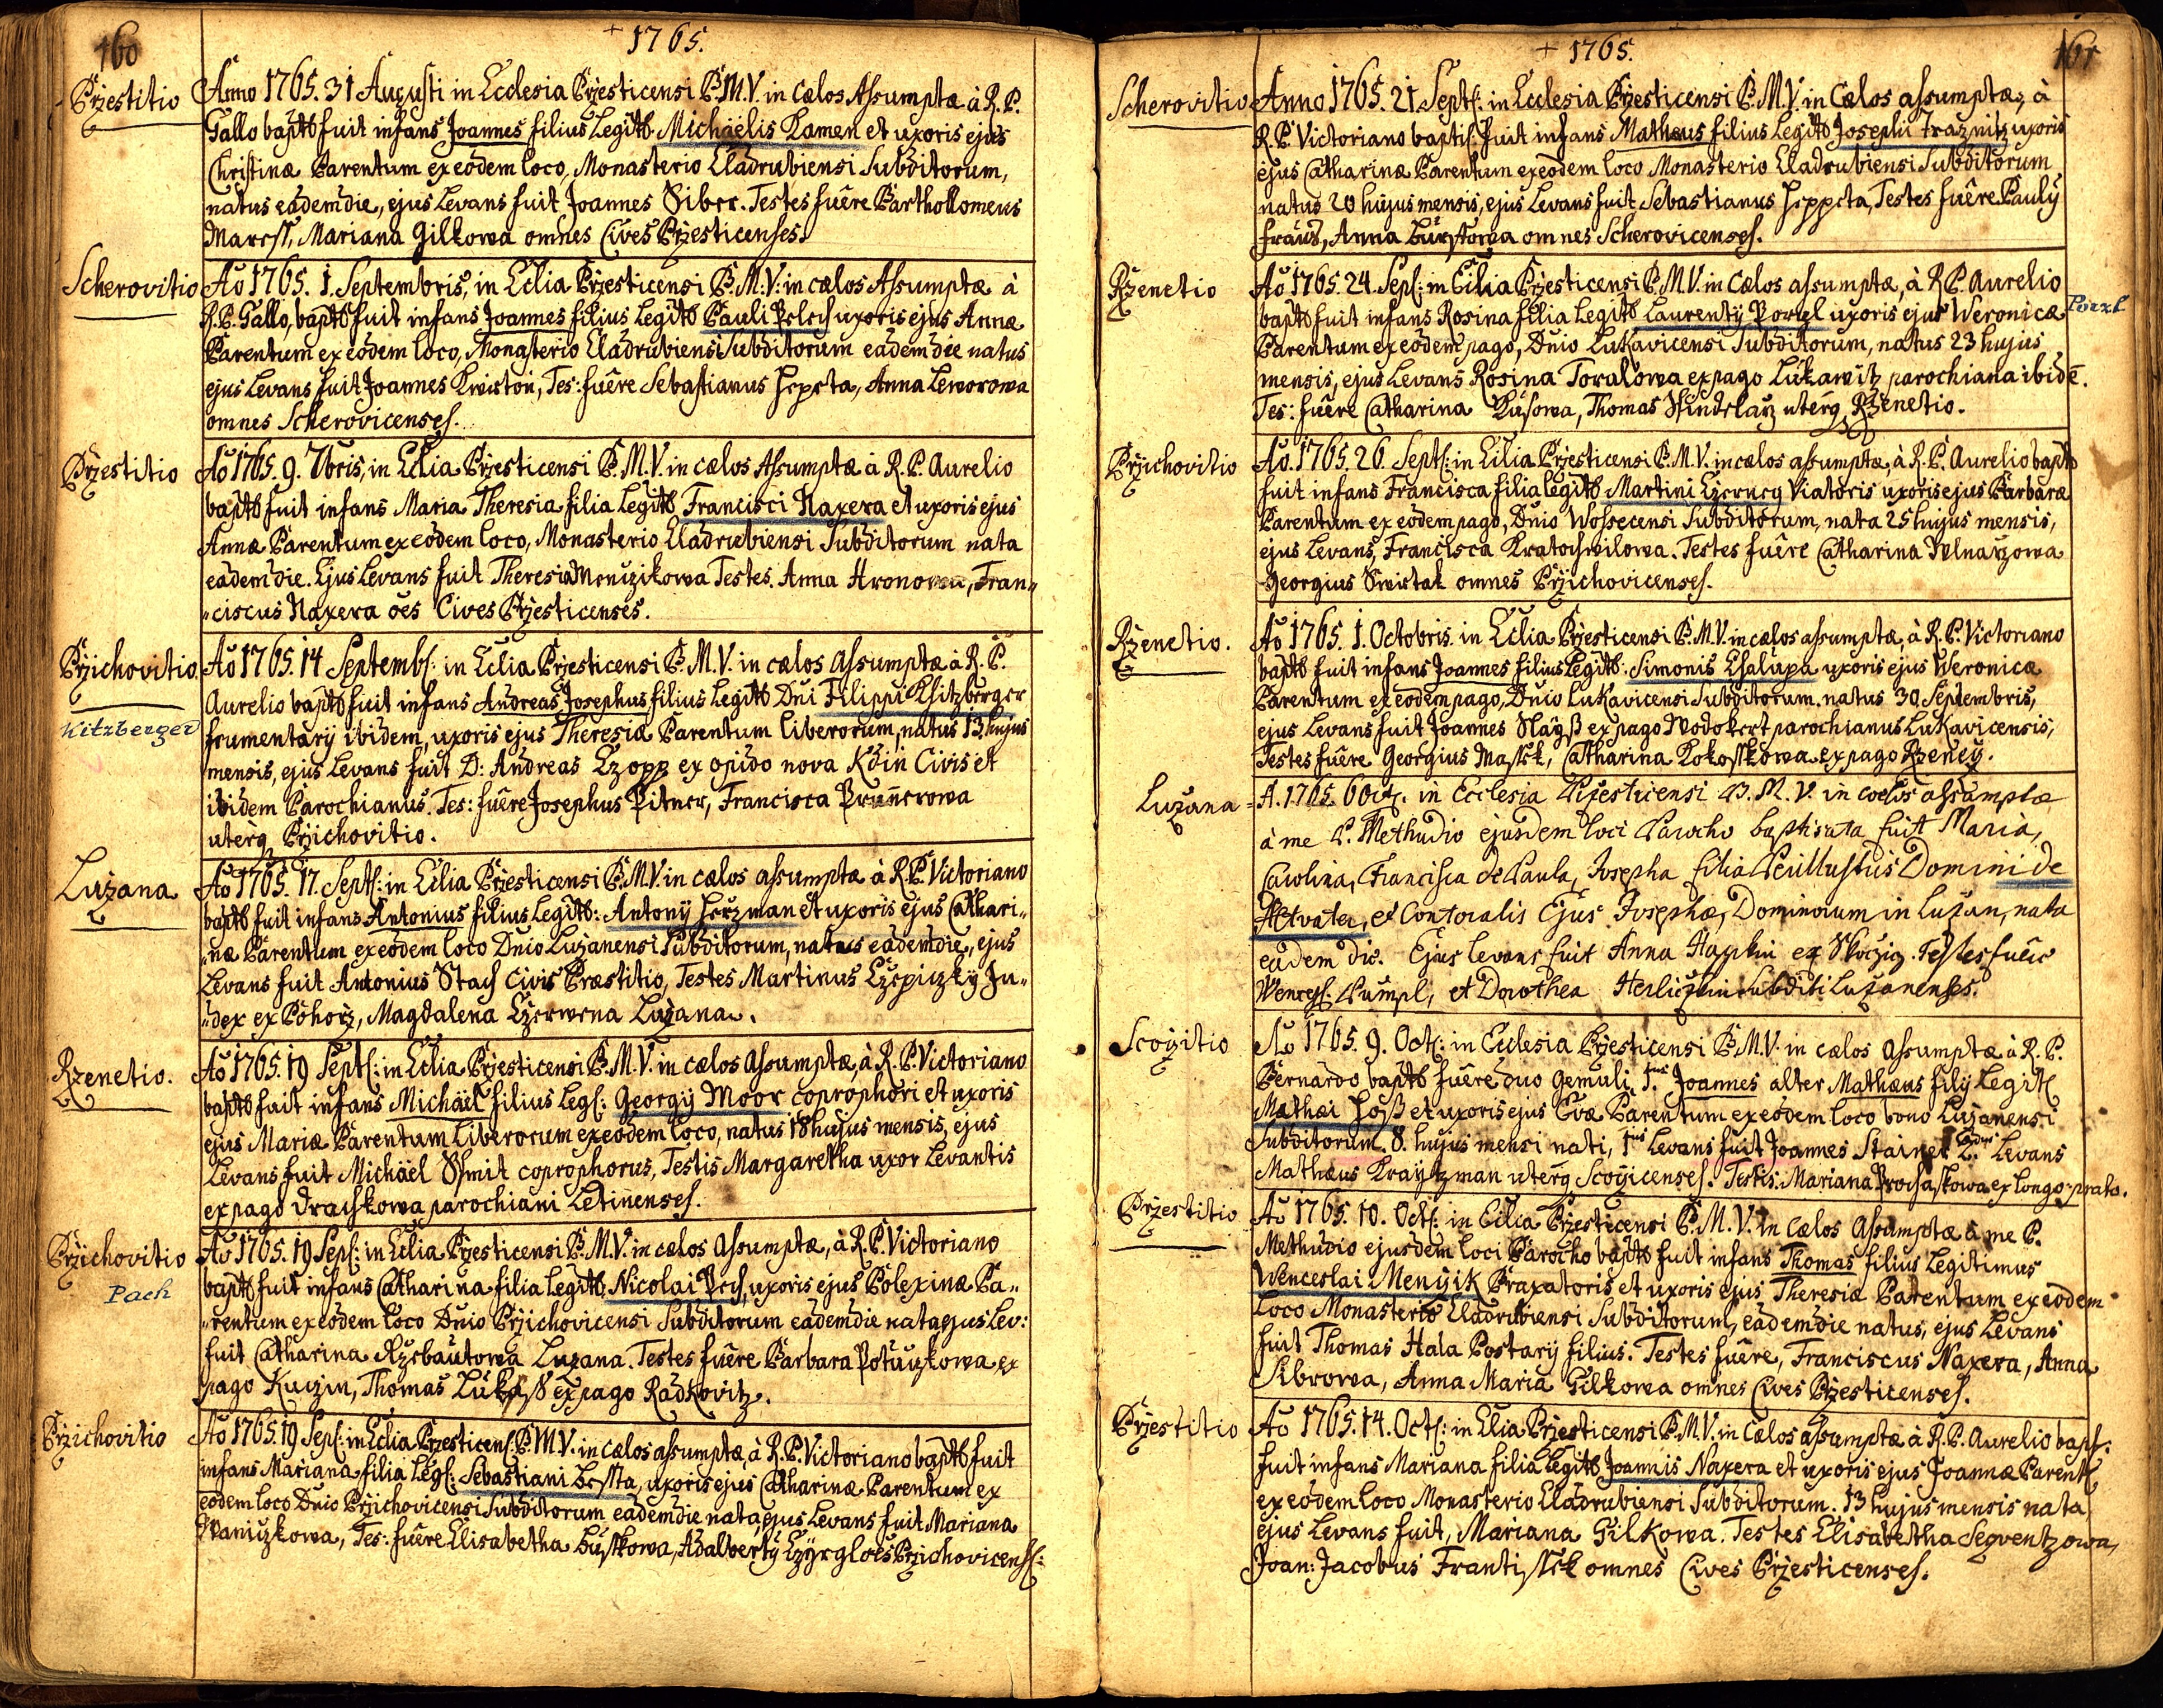 160
+ 1765.
Przestitio
Anno 1765. 31 Augusti in Ecclesia Przesticensi B.M.V. in Cælos Assumptæ à R.P.
Gallo baptõ fuit infans Joannes filius Legitõ Michaëlis Kamen et uxoris ejus
Christinæ Parentum ex eodem loco, Monasterio Cladrubiensi Subditorum,
natus eadem die, ejus Levans fuit Joannes Siber. Testes fuêre Barthollomeus
Maresst, Mariana Gilkowa omnes Cives Przesticenses.
Scherovitio
Ao 1765. 1. Septembris, in Eclia Przesticensi B.M.V: in cælos Assumptæ à
R.P. Gallo, baptõ fuit infans Joannes filius Legitõ Pauli Pelech uxoris ejus Annæ
Parentum ex eodem loco, Monasterio Cladrubiensi Subditorum eadem die natus
ejus Levans fuit Joannes Kwiston, Tes: fuêre Sebastianus Heppta, Anna Leworowa
omnes Scherovicenses.
Przestitio
Ao 1765. 9. 7bris, in Eclia Przesticensi B.M.V. in cælos Assumptæ à R.P. Aurelio
baptõ fuit infans Maria Theresia filia Legitõ Francisci Naxera et uxoris ejus
Annæ Parentum ex eodem loco, Monasterio Cladrubiensi Subditorum nata
eadem die. Ejus Levans fuit Theresia Menczikowa Testes. Anna Hronowa, Fran„
„ciscus Naxera oes Cives Przesticenses.
Przichovitio
Kitzberger
Ao 1765. 14 Septembr: in Eclia Przesticensi B.M.V. in cælos Assumptæ à R.P.
Aurelio baptõ fuit infans Andreas Josephus filius Legitõ Dni Filippi Khitzberger
frumentarij ibidem, uxoris ejus Theresiæ Parentum liberorum, natus 13 hujus
mensis, ejus Levans fuit D: Andreas Czopp ex opido nova Kdin Civis et
ibidem Parochianus. Tes: fuêre Josephus Pitner, Francisca Prunnerowa
uterq Przichovitio.
Luzana
Ao 1765. 17. Sept: in Eclia Przesticensi B.M.V. in cælos assumptæ à R.P. Victoriano
baptõ fuit infans Antonius filius Legitõ: Antonij Herzman et uxoris ejus Cathari„
„næ Parentum ex eodem loco Dnio Luzanensi Subditorum, natus eadem die, ejus
Levans fuit Antonius Stach Civis Præstitio, Testes Martinus Czepiczky Ju„
„dex ex Pohorz, Magdalena Czerwena Luzana.
Rzenetio.
Ao 1765. 19 Sept: in Eclia Przesticensi B.M.V. in cælos Assumptæ, à R.P. Victoriano
baptõ fuit infans Michaël filius Leg: Georgij Moor coprophori et uxoris
ejus Mariæ Parentum liberorum ex eodem loco, natus 18 hujus mensis, ejus
Levans fuit Michaël Schmit coprophorus, Testis Margaretha uxor Levantis
ex pago Drachkowa parochiani Letinenses.
Przichovitio
Pach
Ao 1765. 19 Sep: in Eclia Przesticensi B.M.V. in cælos Assumptæ, à R.P. Victoriano
baptõ fuit infans Catharina filia Legitõ Nicolai Pech, uxoris ejus Polexinæ Pa„
„rentum ex eodem loco Dnio Przichovicensi Subditorum eadem die nata ejus Lev:
fuit Catharina Rzebautowa Luzana. Testes fuêre Barbara Potuczkowa ex
pago Kuczin, Thomas Lukass ex pago Radkovitz.
Przichovitio
Ao 1765. 19 Sep: in Eclia Przesticens: B.M.V. in cælos assumptæ, à R.P. Victoriano baptõ fuit
infans Mariana filia Leg: Sebastiani Lessta, uxoris ejus Catharinæ Parentum ex
eodem loco Dnio Przichovicensi Subditorum eadem die nata, ejus Levans fuit Mariana
Waniczkowa, Tes: fuêre Elisabetha Busskowa, Adalbertg Czyrgl oes Przichovicens:
161
+ 1765.
Scherovitio
Anno 1765. 21 Sept: in Ecclesia Przesticensi B.M.V. in Cælos assumptæ, à
R.P. Victoriano baptis: fuit infans Mathæus filius Legitõ Josephi Traznitz uxoris
ejus Catharinæ Parentum ex eodem loco Monasterio Cladrubiensi Subditorum
natus 20 hujus mensis, ejus Levans fuit Sebastianus Heppta, Testes fuêre Pauly
fraus, Anna Burstowa omnes Scherovicenses.
Rzenetio
Ao 1765. 24. Sep: in Eclia Przesticensi B.M.V. in Cælos assumptæ, à R.P. Aurelio
baptõ fuit infans Rosina filia Legitõ Laurentij Porzl uxoris ejus Weronicæ
Porzl
Parentum ex eodem pago, Dnio Lukavicensi Subditorum, natus 23 hujus
mensis, ejus Levans Rosina Toralowa ex pago Lukawitz parochiana ibidẽ.
Tes: fuêre Catharina Kusowa, Thomas Schindelarz uterq Rzenetio.
Przichovitio
Ao. 1765. 26. Sept: in Eclia Przesticensi B.M.V. in cælos assumptæ, à R.P. Aurelio baptõ
fuit infans Francisca filia Legitõ Martini Czerney Viatoris uxoris ejus Barbaræ
Parentum ex eodem pago, Dnio Wossecensi Subditorum, nata 25 hujus mensis,
ejus Levans, Francisca Kratochwilowa. Testes fuêre Catharina Wlnarzowa
Georgius Swirtak omnes Przichovicenses.
Rzenetio.
Ao 1765. 1. Octobris. in Eclia Przesticensi B.M.V. in cælos assumptæ, à R.P. Victoriano
baptõ fuit infans Joannes filius Legitõ. Simonis Chalupa uxoris ejus Veronicæ
Parentum ex eodem pago, Dnio Lukavicensi Subditorum. natus 30. Septembris,
ejus Levans fuit Joannes Slayß ex pago Wodokert parochianus Lukavicensis,
Testes fuêre Georgius Massek, Catharina Kokosskowa ex pago Rzeneỹ.
Luzana
A. 1765. 6 Oct: in Ecclesia Przesticensi B.M.V. in coelos assumptæ
à me P. Methudio ejusdem loci Parocho baptisata fuit Maria,
Carolina, Francisca de Paula, Josepha filia Perillustris Domini de
Hetvater, et Contoralis Ejus Josephæ, Dominorum in Luzan, nata
eadem die. Ejus levans fuit Anna Haplin ex Skoczicz. Testes fuêre
Wencesl. Pumpl, et Dorothea Herliczkin subditi Luzanenses.
Scoyitio
Ao 1765. 9. Oct: in Ecclesia Przesticensi B.M.V. in cælos assumptæ à R.P.
Bernardo baptõ fuêre duo gemuli, 1mus Joannes alter Mathæus filij Legit:
Mathæi Hoß et uxoris ejus Evæ Parentum ex eodem loco bono Luzanensi
Subditorum. 8. hujus mensi nati, 1mus Levans fuit Joannes Stainer 2dus Levans
Mathæus Kraytzman uterq Scoyicenses. Testis. Mariana Prochaskowa ex longo prato.
Przestitio
Ao 1765. 10. Oct: in Eclia Przesticensi B.M.V. in Cælos Assumptæ à me P.
Methudio ejusdem loci Parocho baptõ fuit infans Thomas filius Legitimus
Wenceslai Menzik Braxatoris et uxoris ejus Theresiæ Parentum ex eodem
Loco Monasterio Cladrubiensi Subditorum, eadem die natus, ejus Levans
fuit Thomas Hala Postarij filius. Testes fuêre, Franciscus Naxera, Anna
Sibrowa, Anna Maria Gilkowa omnes Cives Przesticenses.
Przestitio
Ao 1765. 14. Oct: in Eclia Przesticensi B.M.V. in Cælos assumptæ à R.P. Aurelio bapt:
fuit infans Mariana filia Legitõ Joannis Naxera et uxoris ejus Joannæ Parent:
ex eodem loco Monasterio Cladrubiensi Subditorum. 13 hujus mensis nata
ejus Levans fuit, Mariana Gilkowa. Testes Elisabetha Seqventzowa,
Joan: Jacobus Frantissek omnes Cives Przesticenses.